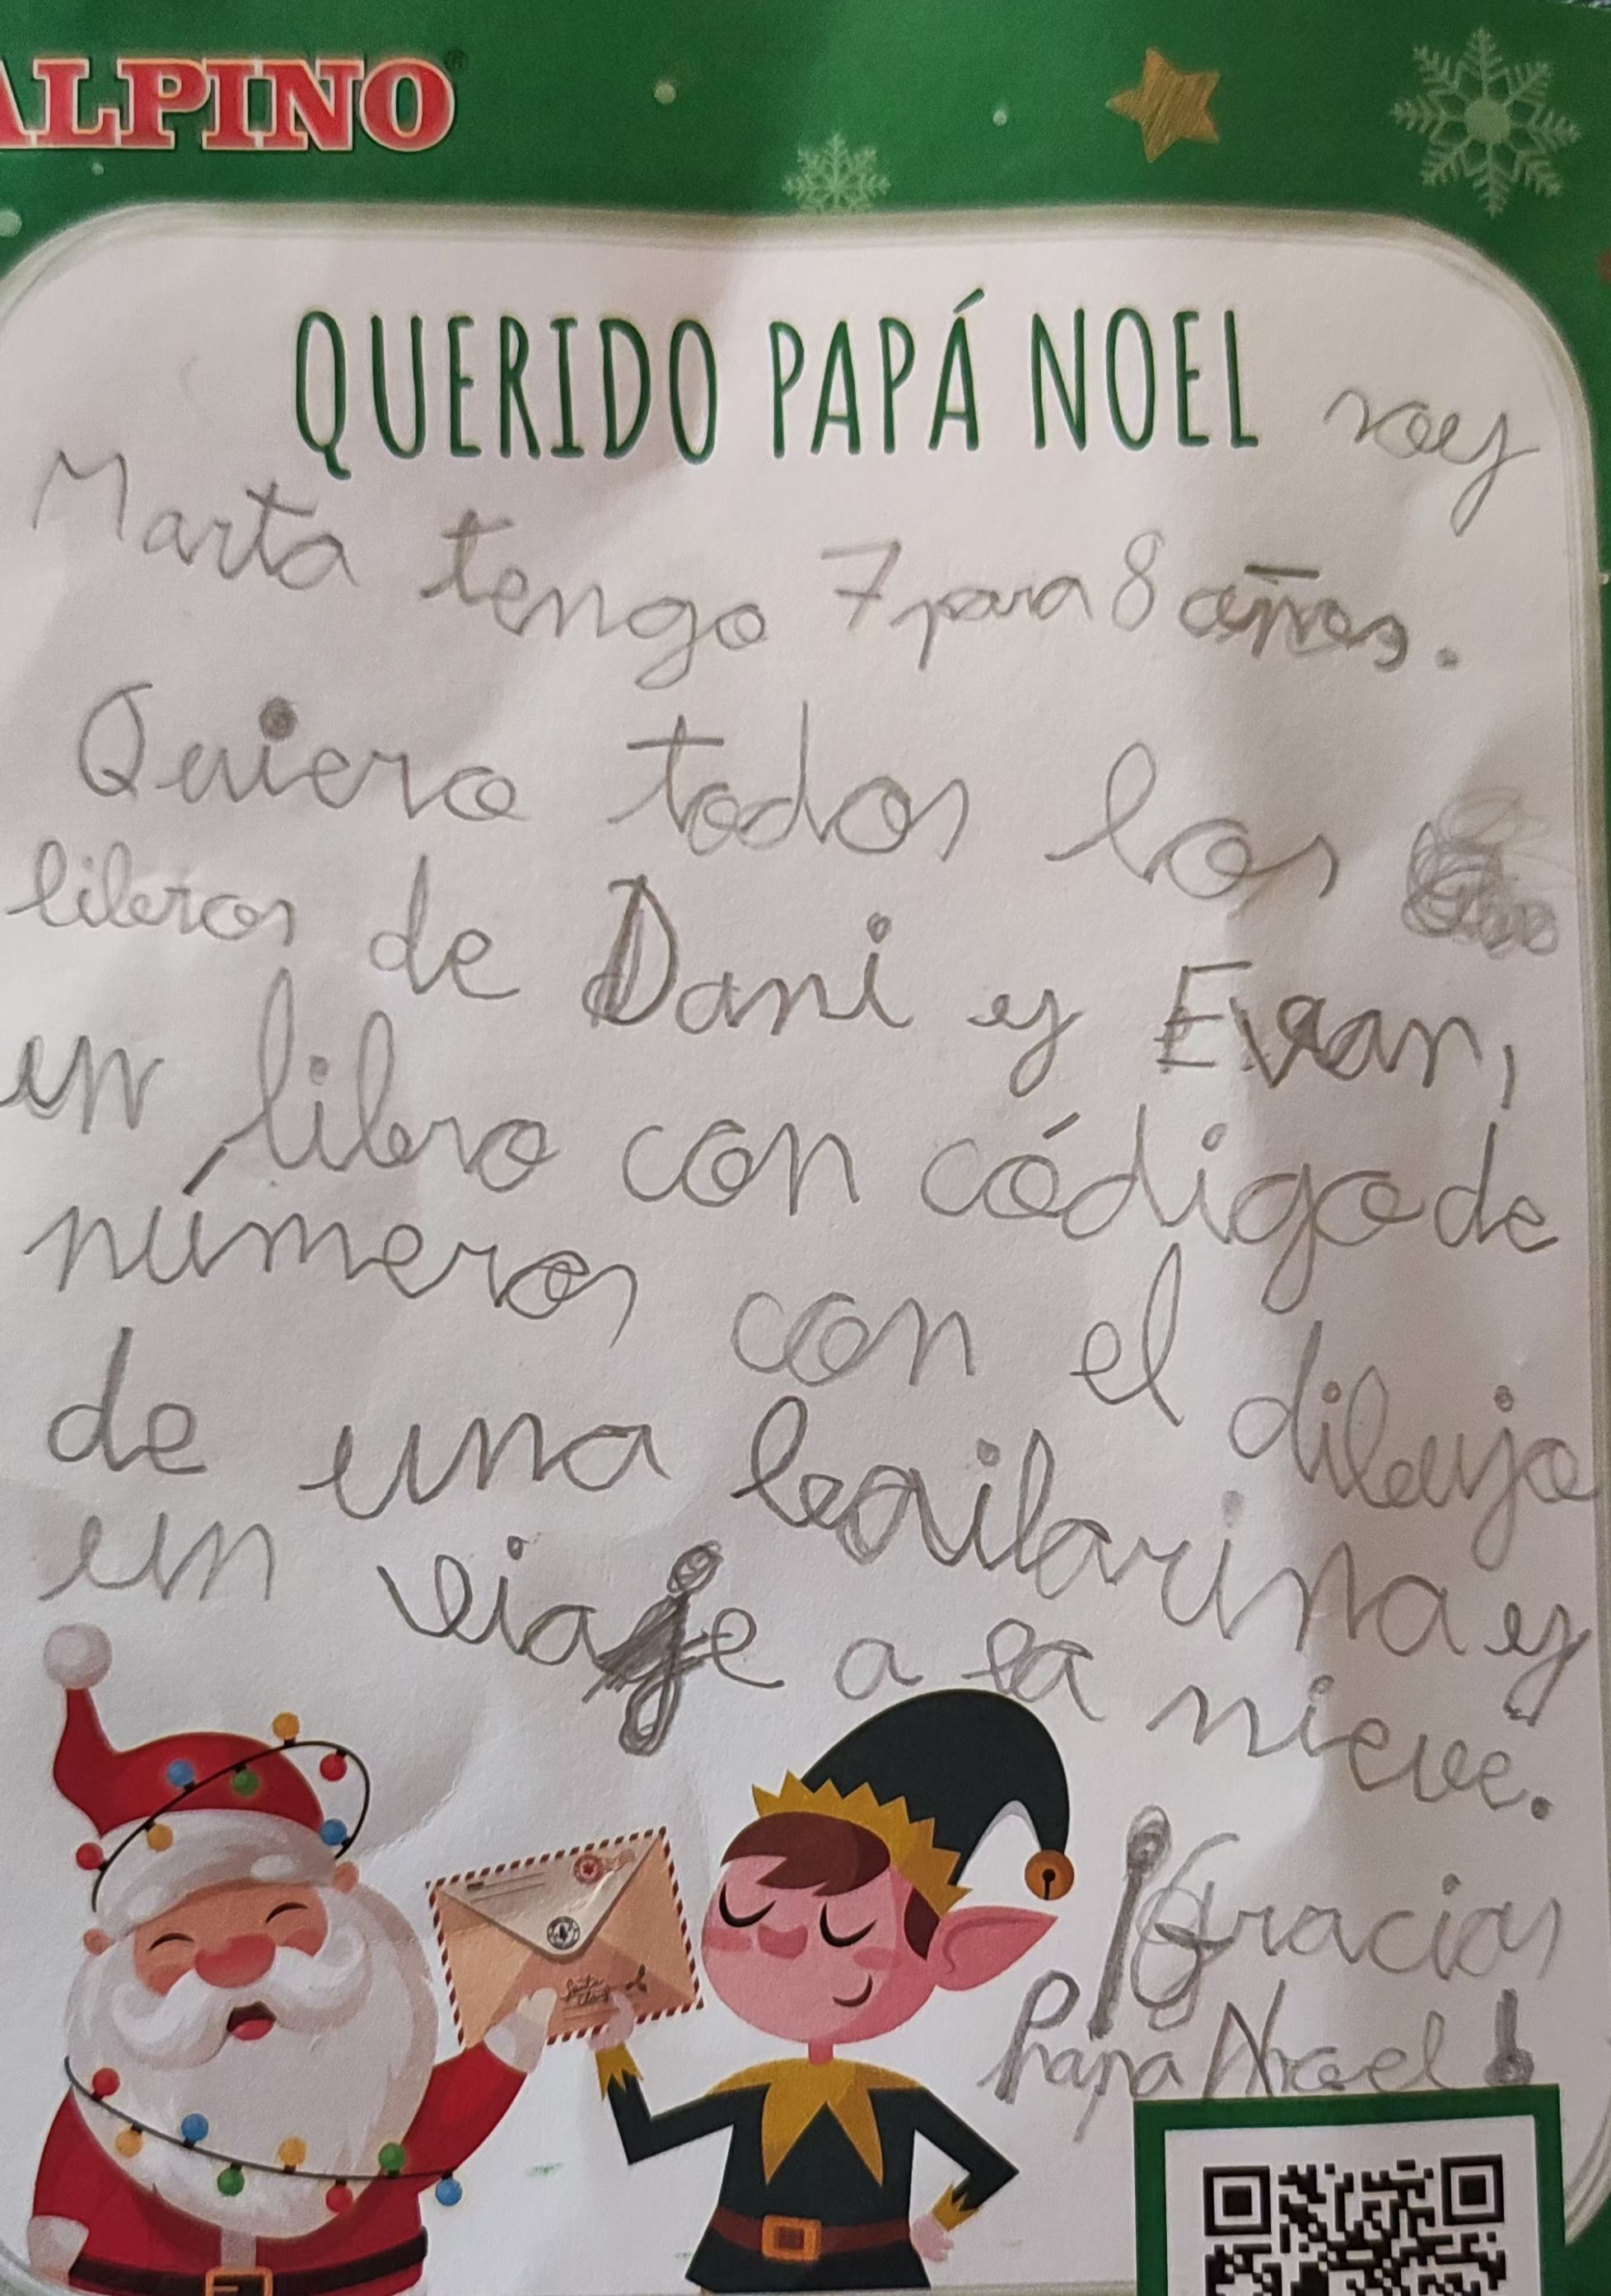 ALPINO
QUERIDO PAPÁ NOEL soy
Marta tengo 7 para 8 años.
Quiero todos los
libros de Dani y Evan,
un libro con código de
números con el dibujo
de una bailarina y
un viaje a la nieve.
¡Gracias
Papa Noel!